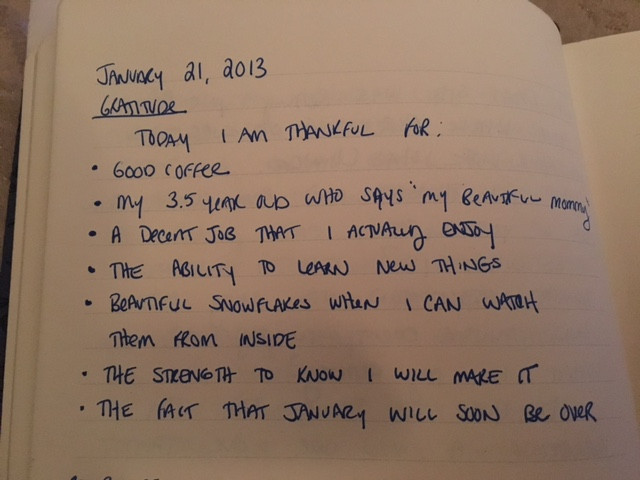 JANUARY 21, 2013
GRATITUDE
TODAY I AM THANKFUL FOR:
• GOOD COFFEE
• MY 3.5 YEAR OLD WHO SAYS "MY BEAUTIFUL MOMMY"
• A DECENT JOB THAT I ACTUALLY ENJOY
• THE ABILITY TO LEARN NEW THINGS
• BEAUTIFUL SNOWFLAKES WHEN I CAN WATCH
THEM FROM INSIDE
• THE STRENGTH TO KNOW I WILL MAKE IT
• THE FACT THAT JANUARY WILL SOON BE OVER